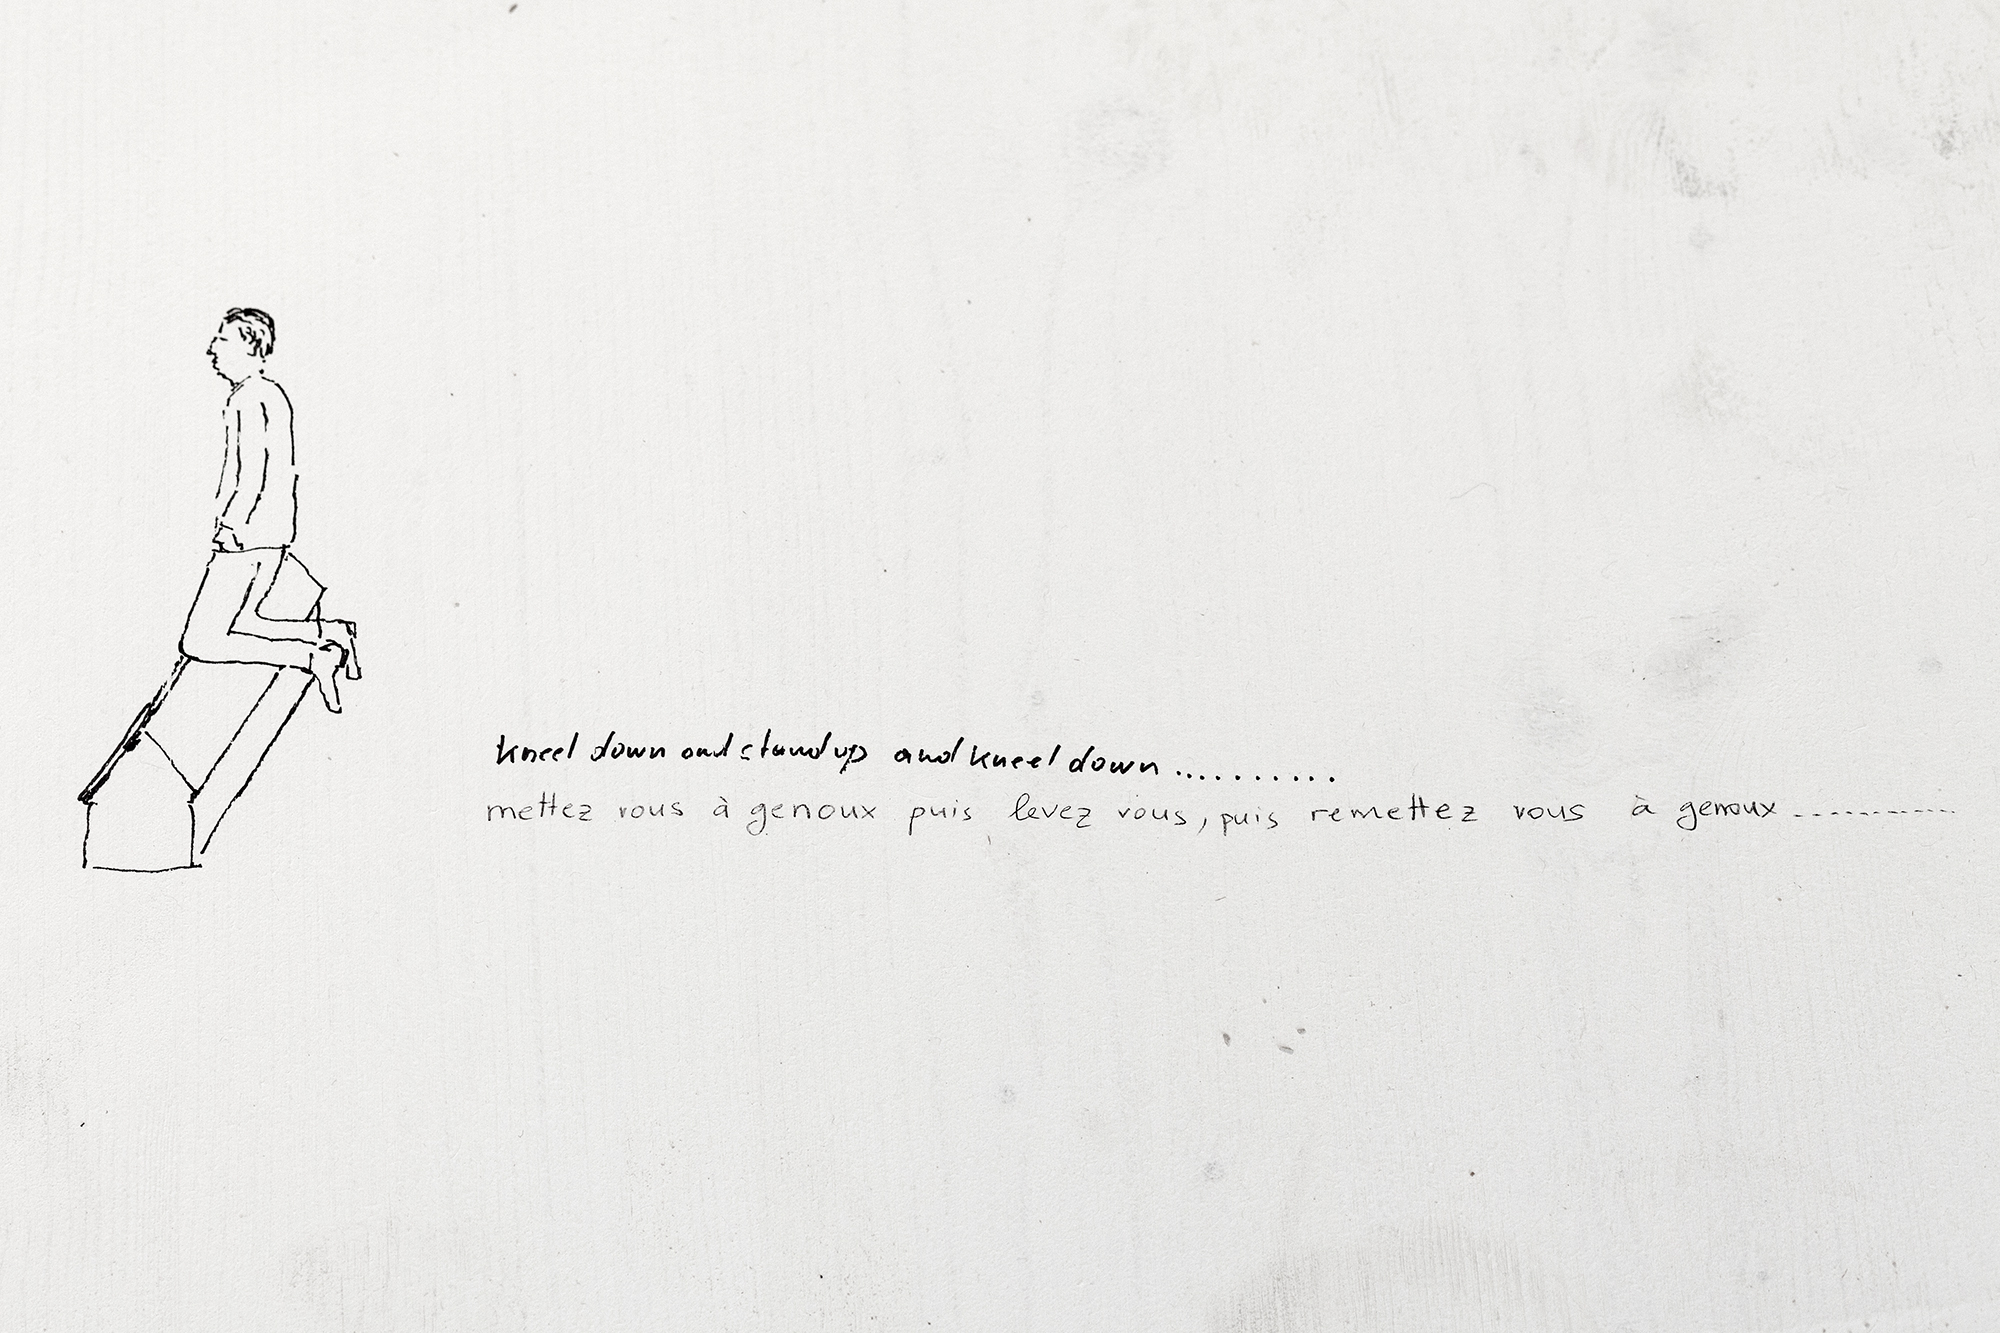 kneel down and stand up and kneel down ..........
mettez vous à genoux puis levez vous, puis remettez vous à genoux ------------